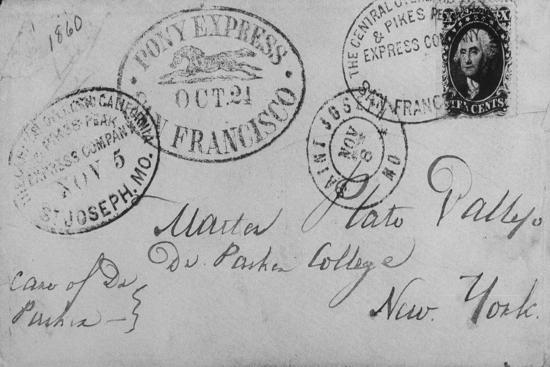 1860
PONY EXPRESS
OCT. 21
SAN FRANCISCO
THE CENTRAL OVERLAND
& PIKES PEAK
EXPRESS COMPANY
SAN FRANC
TEN CENTS
CALIFORNIA
& PIKES PEAK
EXPRESS COMPANY
NOV 5
ST JOSEPH, MO.
SAINT JOSEPH
NOV
8
MO
Master Plato Vallejo
Dr. Parker College
New. York.
Care of Dr
Parker